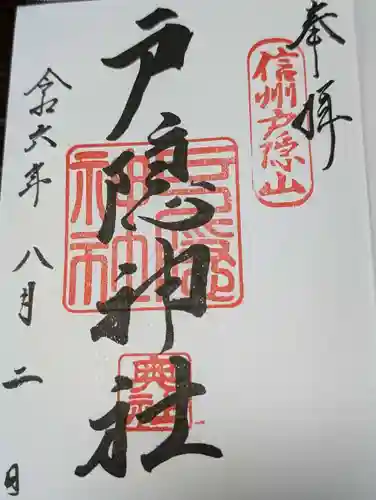 奉拝
信州戸隠山
戸隠神社
戸隠神社
奥社
令和六年八月二日